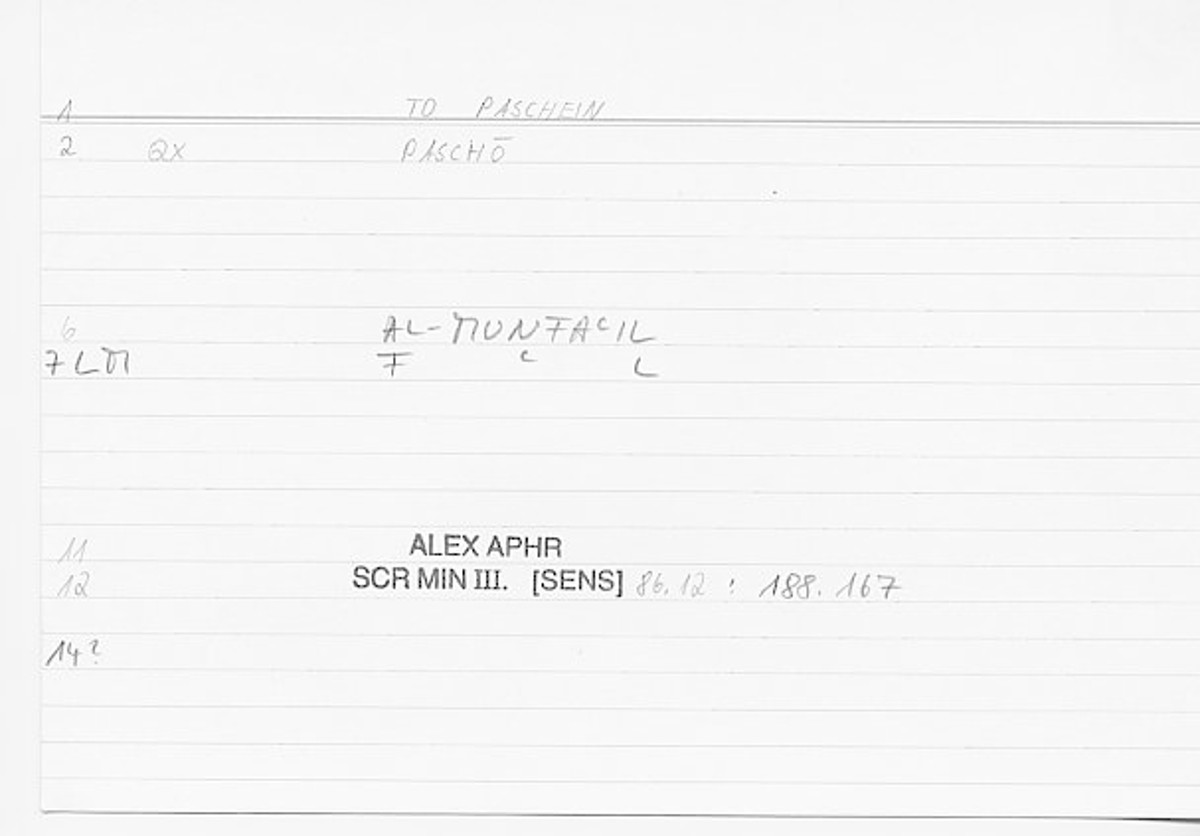 1 TO PASCHEIN
2 QX PASCHŌ
6 AL-MUNFAᶜIL
7 LM F ᶜ L
11 ALEX APHR
12 SCR MIN III. [SENS] 86.12 : 188.167
14?